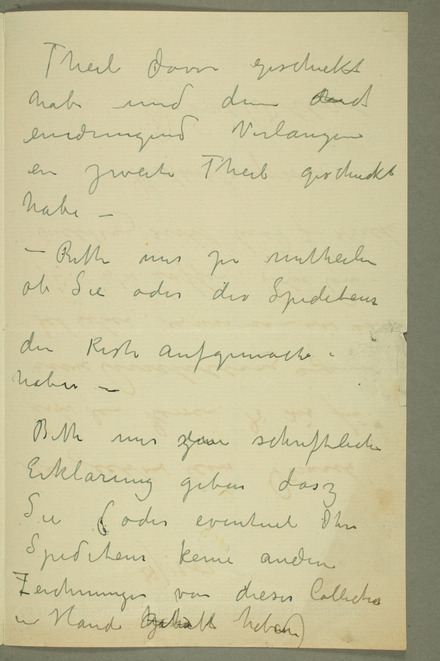 Theil davon geschickt
habe und dann
eindringend Verlangen
en zweite Theil geschickt
habe –
– Bitte mir zu mittheilen
ob Sie oder die Spediteur
die Kiste aufgemacht
haben –
Bitte mir schriftlich
Erklärung geben dasz
Sie (oder eventuel Ihr
Spediteur keine andere
Zeichnungen von dieser Collection
in Hande haben)